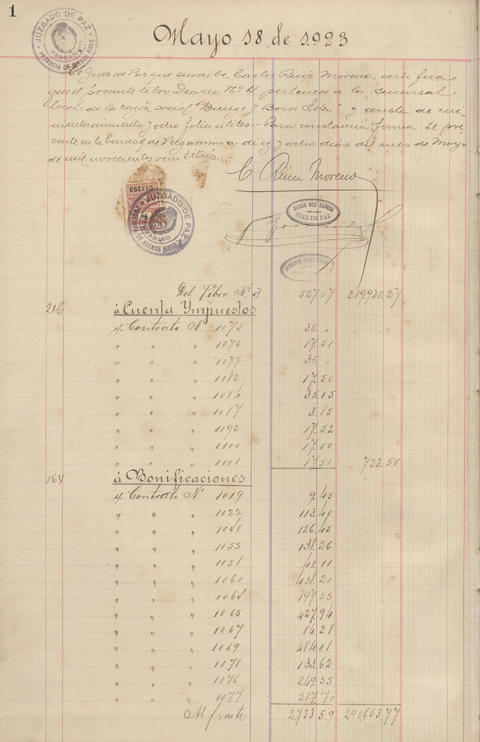 1
JUZGADO DE PAZ
Mayo 18, de 1923
El Juez de Paz que suscribe, Carlos Ruiz Moreno, certifica
que el presente libro Diario Nº 4 pertenece a la sucursal
local de la razón social "Bunge y Born Lda" y consta de
y ocho folios útiles - Para constancia firma el pre
sente en la ciudad de Pergamino a diez y ocho días del mes de Mayo
de mil novecientos veintitres
C. Ruiz Moreno
011293
JUZGADO DE PAZ
PERGAMINO
CARLOS RUIZ MORENO
JUEZ DE PAZ
Del Libro Nº 3 219930.27
206 á Cuenta Ympuestos
s/ Contrato Nº 1073 35 "
" " " 1076 17.51
" " " 1077 35 "
" " " 1082 17.50
" " " 1084 35.05
" " " 1087 3.15
" " " 1092 17.52
" " " 1100 17.00
" " " 1101 17.51
164 á Bonificaciones
s/ Contrato Nº 1019 9.45
" " " 1022 113.49
" " " 1048 126.45
" " " 1055 131.26
" " " 1058 41.11
" " " 1060 431.20
" " " 1064 197.55
" " " 1065 427.94
" " " 1067 84.28
" " " 1069 484.08
" " " 1078 133.62
" " " 1076 249.55
" " " 1077 287.70
Al frente 2733.59 290653.77